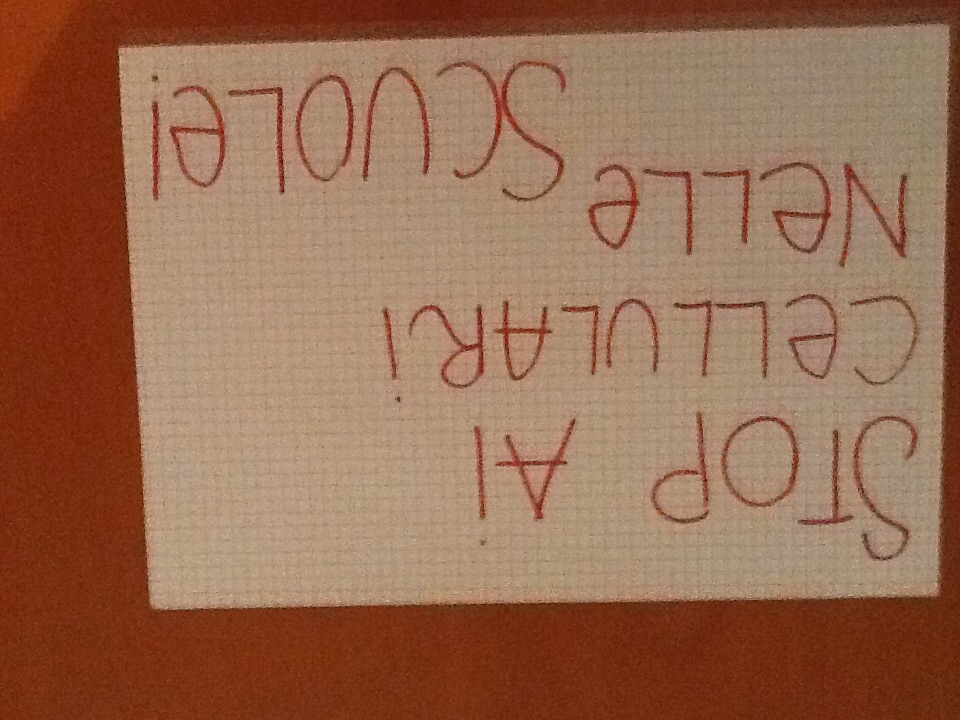 STOP Ai
CeLLULARi
NeLLe
SCUOLe!